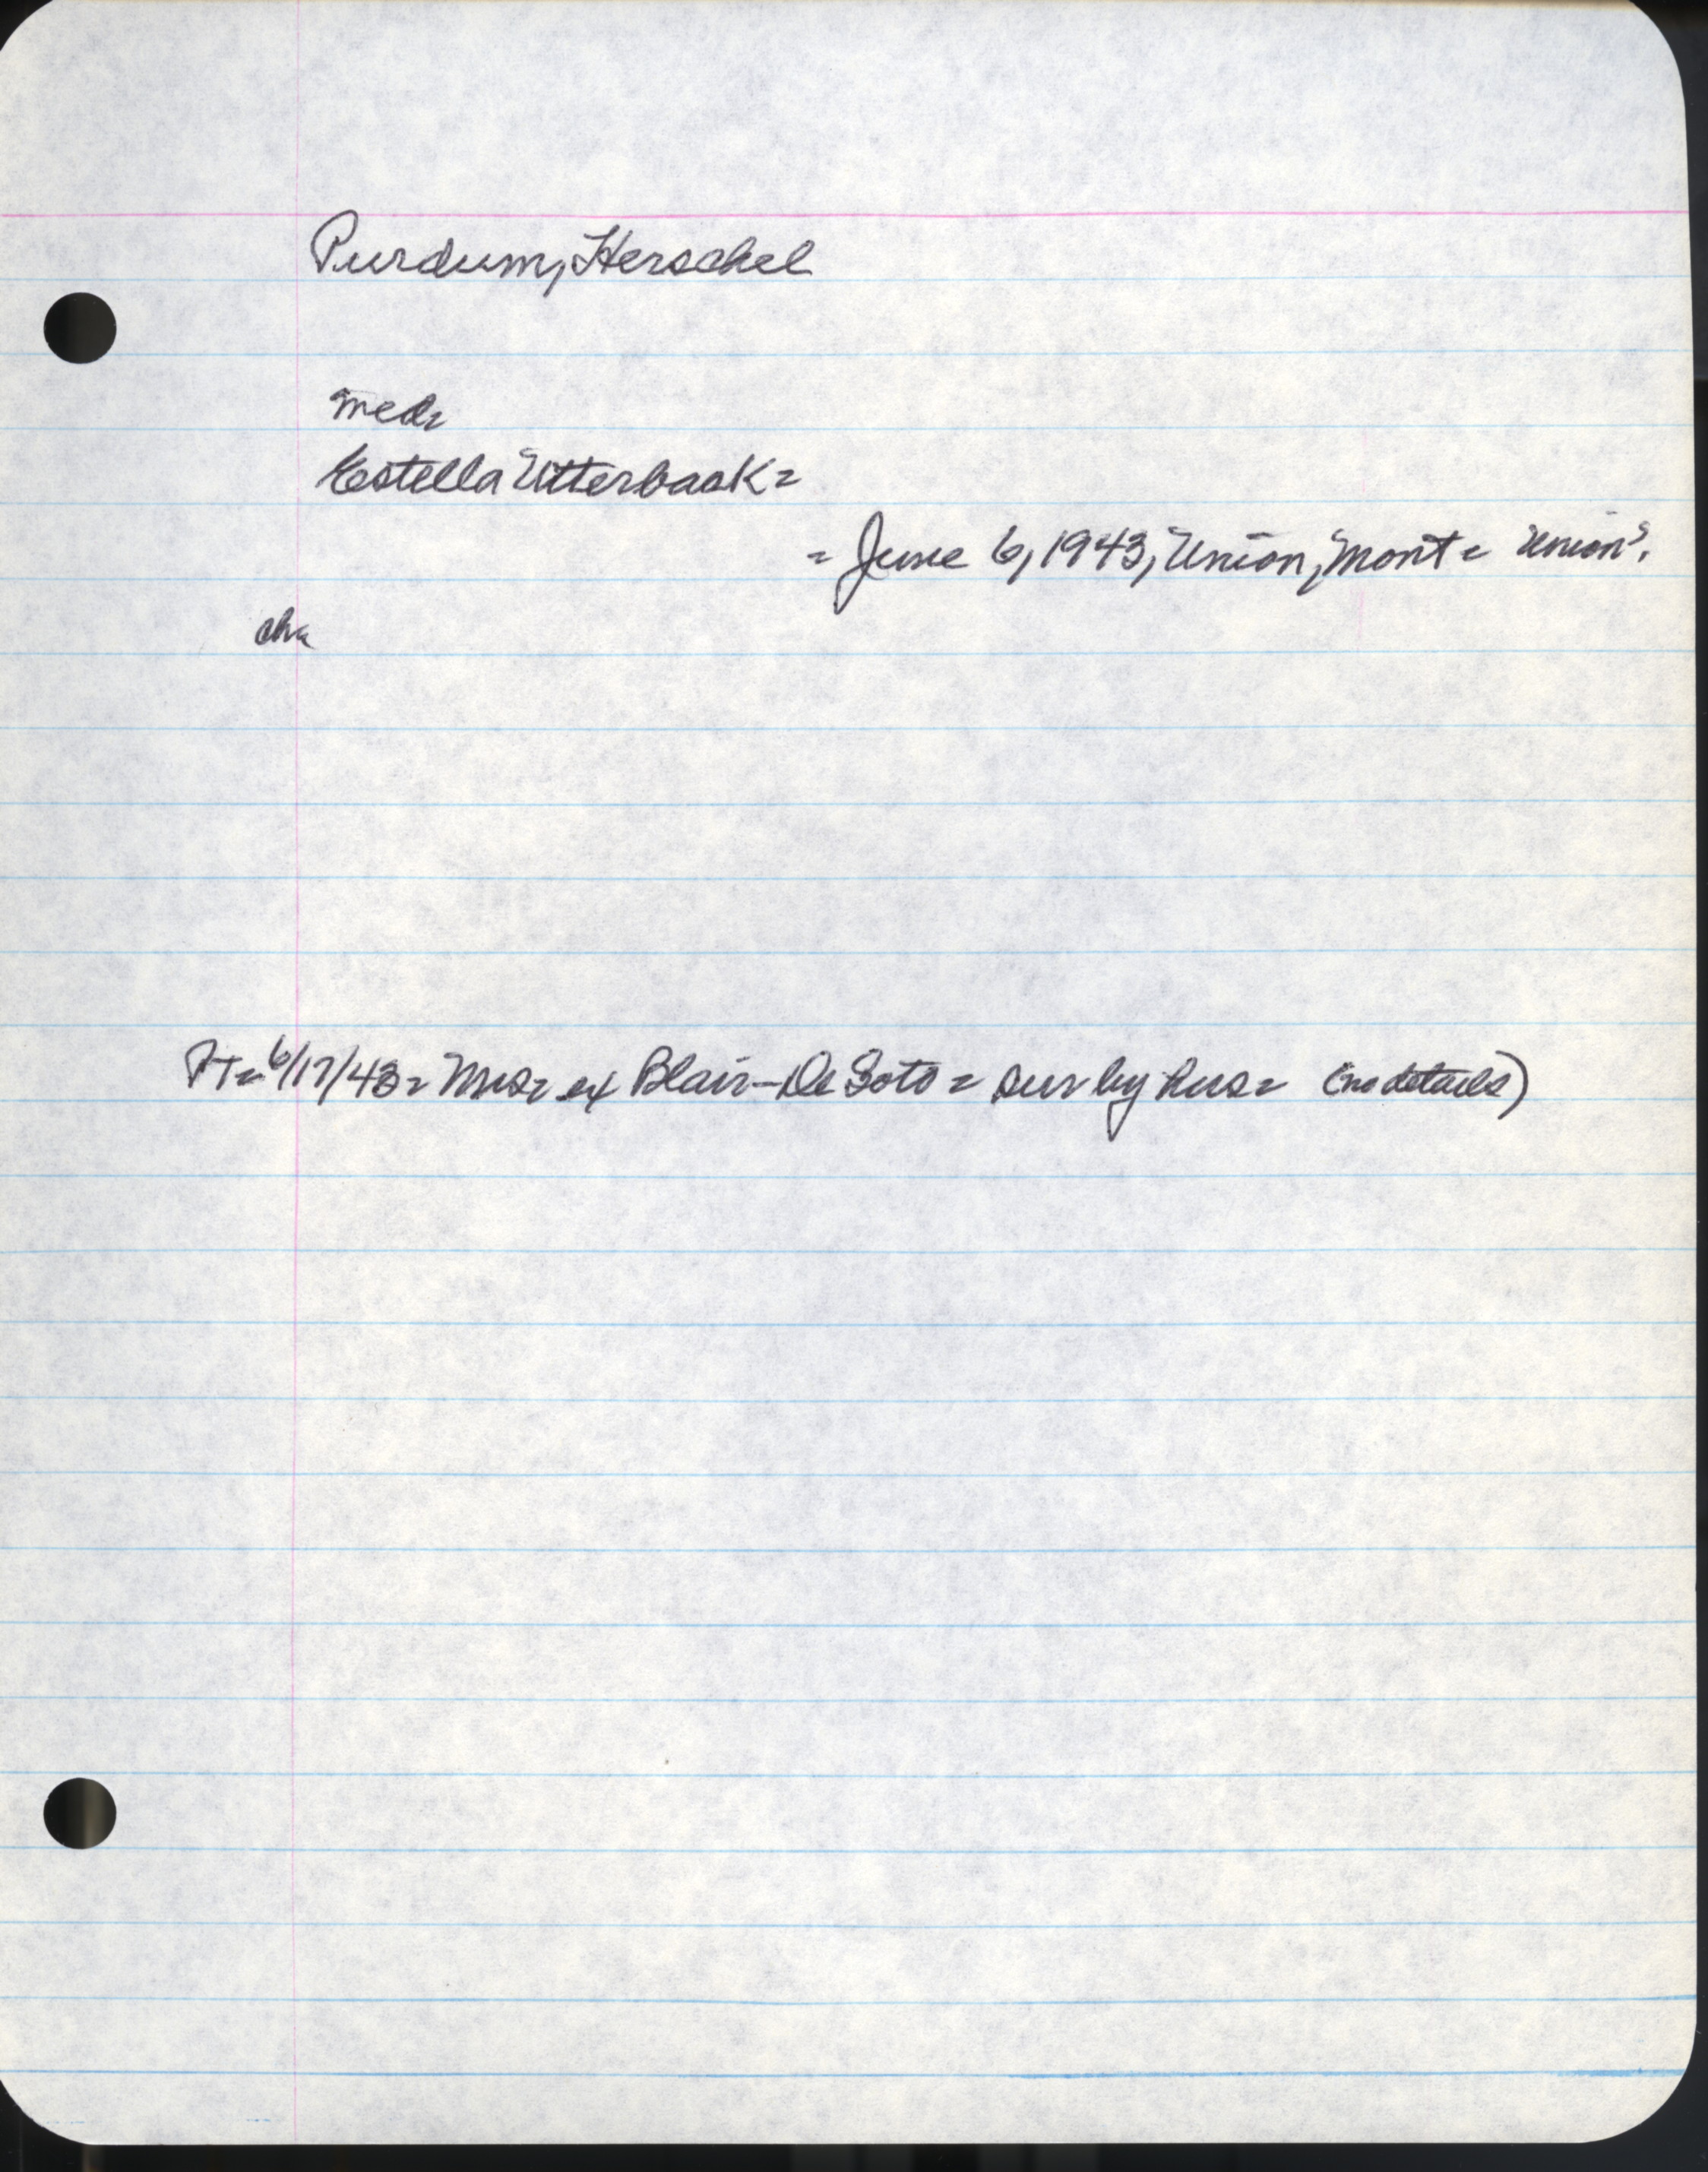 Purdum, Herschel
med=
Estella Utterback=
= June 6, 1943, Union, Mont = Union's.
ch=
PT= 6/17/43= Mrs= ex Blair-De Soto = sur by hus= (no details)